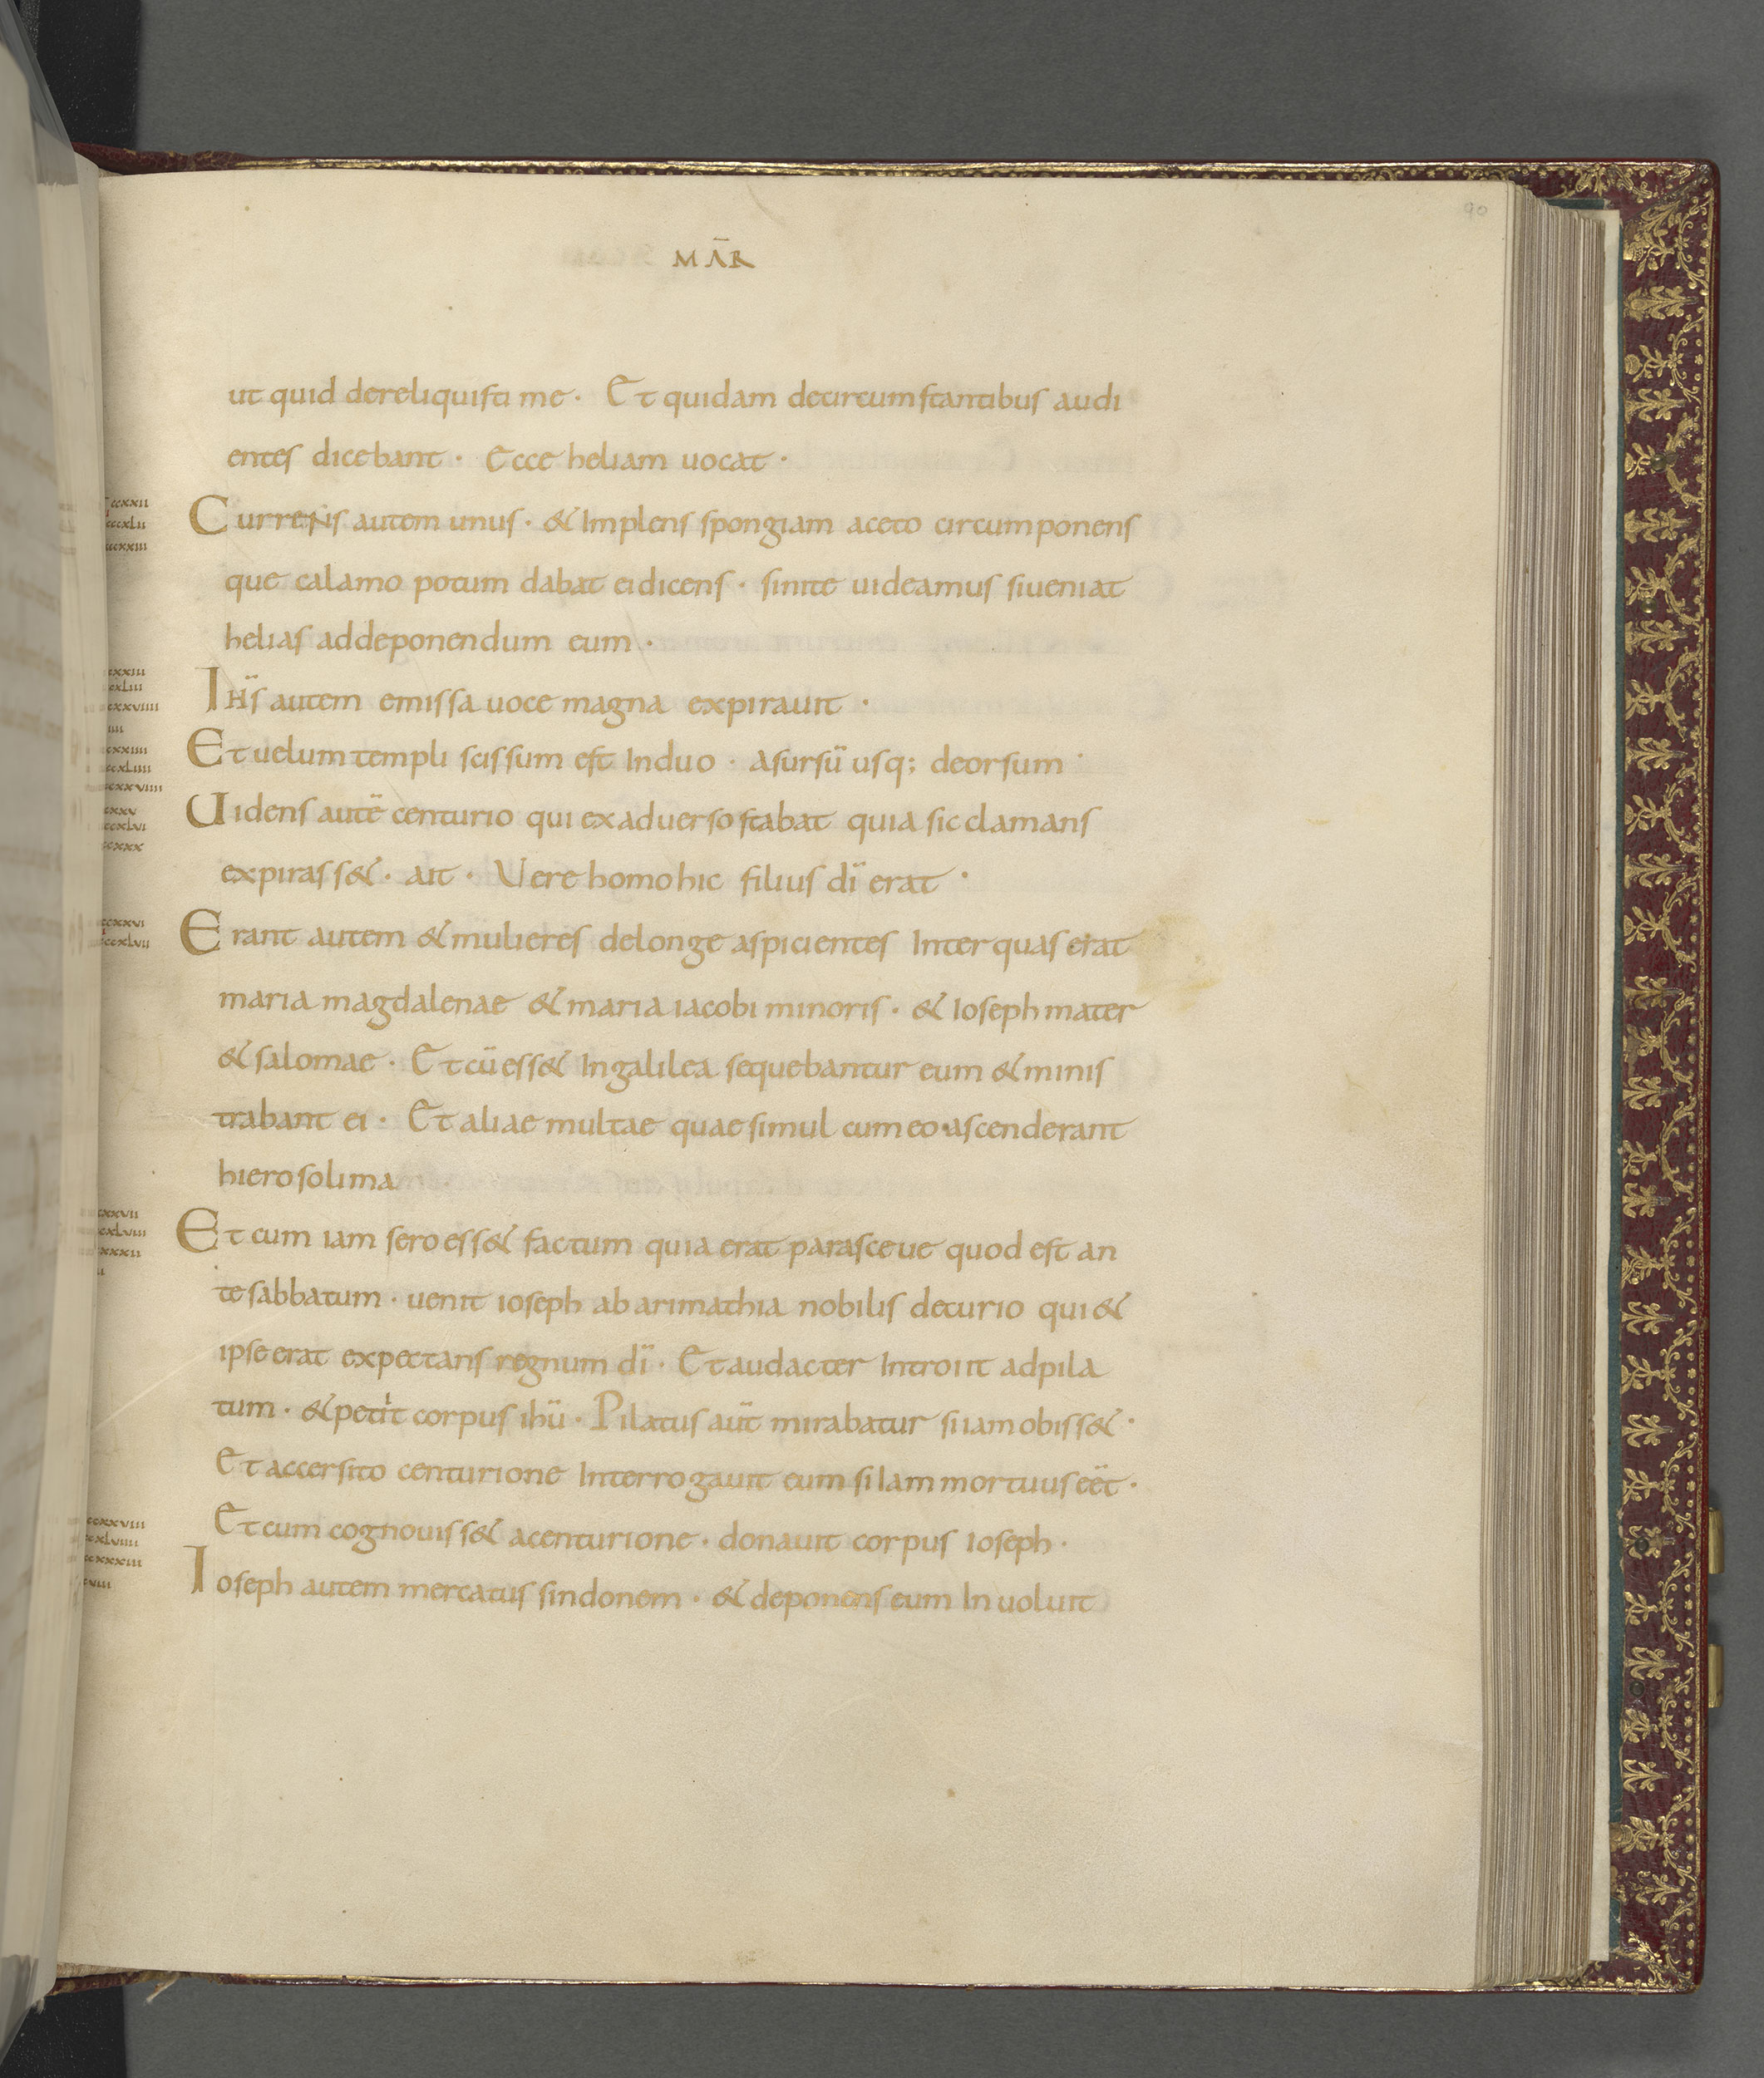 90
MĀR
ut quid dereliquisti me · Et quidam decircumstantibus audi
entes dicebant · Ecce heliam uocat ·
Currens autem unus · & Implens spongiam aceto circumponens
que calamo potum dabat eidicens · sinite uideamus siueniat
helias addeponendum eum ·
Ihs̄ autem emissa uoce magna expirauit ·
Et uelum templi scissum est Induo · Asursū usq; deorsum ·
Uidens autē centurio qui exaduerso stabat quia sic clamans
expirass& · ait · Vere homo hic filius dī erat ·
Erant autem & mulieres delonge aspicientes Inter quas erat
maria magdalenae & maria iacobi minoris · & Ioseph mater
& salomae · Et cū ess& Ingalilea sequebantur eum & minis
trabant ei · Et aliae multae quae simul cum eo · ascenderant
hierosolima
Et cum iam sero ess& factum quia erat parasceue quod est an
te sabbatum · uenit ioseph ab arimathia nobilis decurio qui &
ipse erat expectans regnum dī · Et audacter Introiit adpila
tum · & petiit corpus ihū · Pilatus aūt mirabatur si iam obiss& ·
Et accersito centurione Interrogauit eum si Iam mortuus eēt ·
Et cum cognouiss& acenturione · donauit corpus Ioseph ·
Ioseph autem mercatus sindonem · & deponens eum Inuoluit